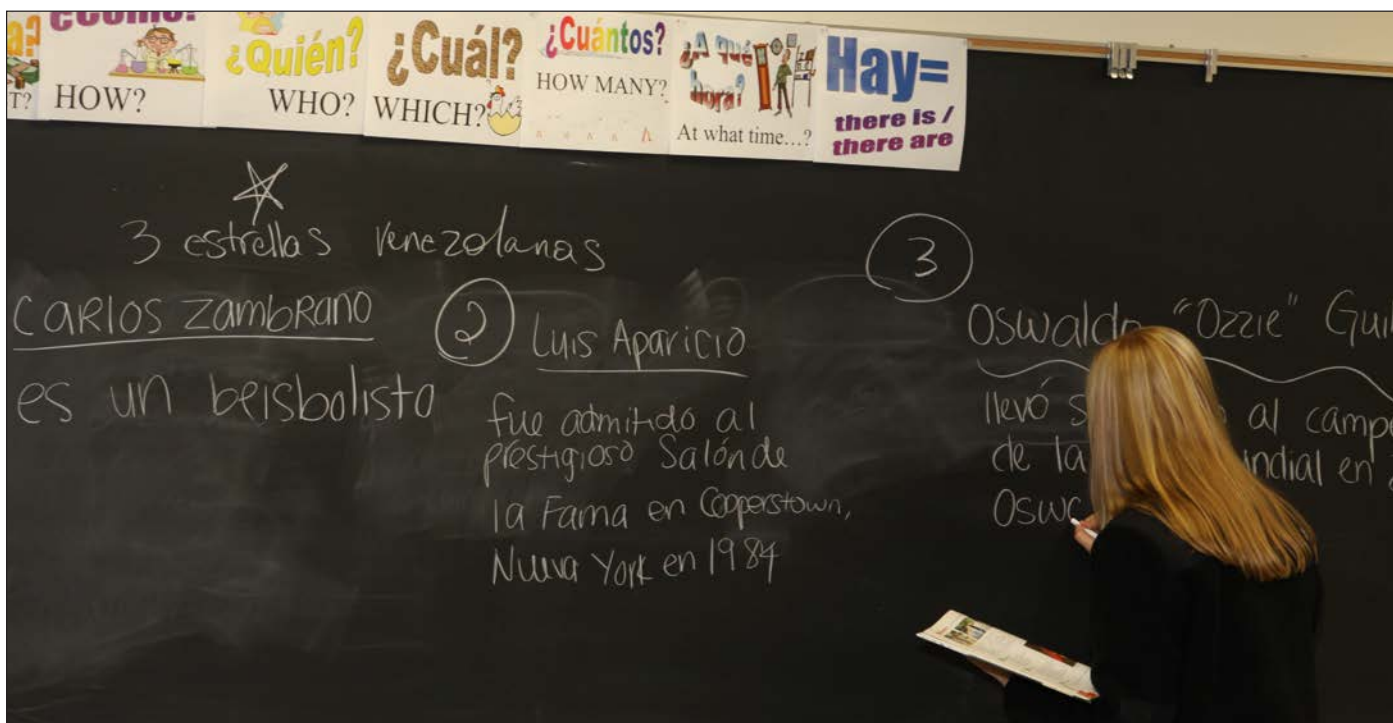 ¿Cómo?
HOW?
¿Quién?
WHO?
¿Cuál?
WHICH?
¿Cuántos?
HOW MANY?
¿A qué
hora?
At what time...?
Hay=
there is /
there are
3 estrellas venezolanas
Carlos Zambrano
es un beisbolista
2
Luis Aparicio
fue admitido al
prestigioso Salón de
la Fama en Cooperstown,
Nueva York en 1984
3
Oswaldo "Ozzie"
llevó al
de la en